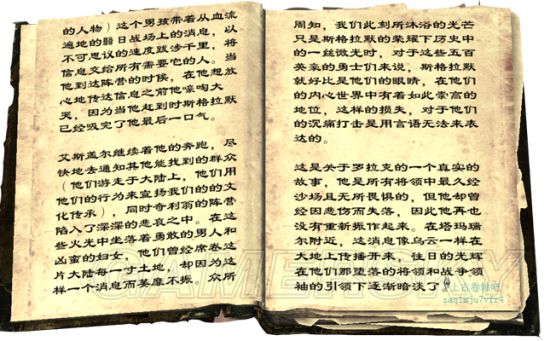 的人物）这个男孩带着从血流
遍地的翳日战场上的消息，以
不可思议的速度跋涉千里，将
信息交给所有需要它的人。当
他到达阵营的时候，在他想放
心地传达信息之前他嚎啕大
哭，因为当他赶到时斯格拉默
已经吸完了他最后一口气。
艾斯盖尔继续着他的奔跑，尽
快地去通知其他能找到的群众
（他们游走于大陆上，他们用
他们的行为来宣扬我们的的文
化传承），同时奇利翁的阵营
陷入了深深的悲哀之中。在这
些火光中坐落着勇敢的男人和
凶蛮的妇女，他们曾经席卷这
片大陆每一寸土地，却因为这
样一个消息而萎靡不振。众所
周知，我们此刻所沐浴的光芒
只是斯格拉默的荣耀下历史中
的一丝微光时，对于这些五百
英豪的勇士们来说，斯格拉默
就好比是他们的眼睛，在他们
的内心世界中有着如此崇高的
地位，这样的损失，对于他们
的沉痛打击是用言语无法来表
达的。
这是关于罗拉克的一个真实的
故事，他是所有将领中最久经
沙场且无所畏惧的，但他却曾
经因悲伤而失落，因此他再也
没有重新振作起来。在塔玛瑞
尔附近，这消息像乌云一样在
大地上传播开来，往日的光辉
在他们那堕落的将领和战争领
袖的引领下逐渐暗淡了。
上古卷轴吧
zaq1mju7vfr4
GAMERSKY